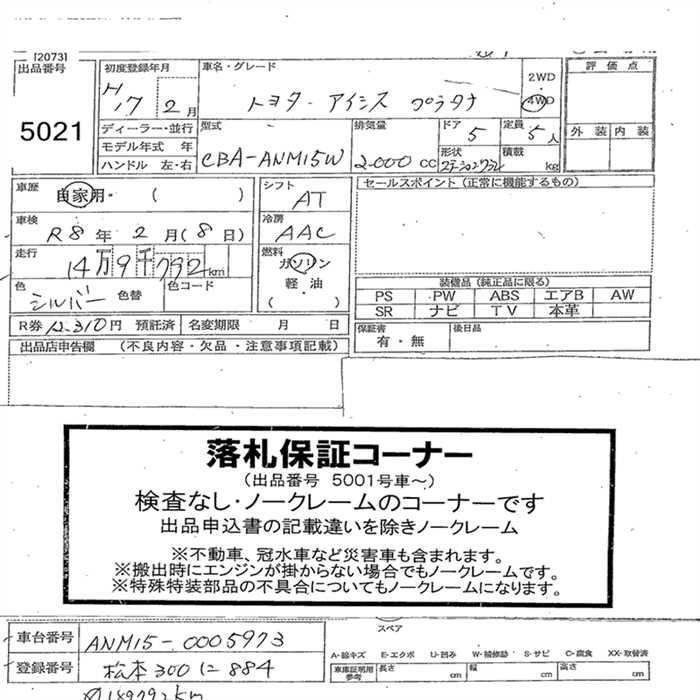 [2073]
出品番号
5021
初度登録年月
H17 2月
車名・グレード
トヨタ アイシス プラタナ
2WD
4WD
評価点
外装 内装
ディーラー・並行
モデル年式 年
ハンドル 左・右
型式
CBA-ANM15W
排気量
2000 CC
ドア
5
定員
5人
形状
ステーションワゴン
積載
kg
車歴
自家用・ ( )
シフト
AT
セールスポイント (正常に機能するもの)
車検
R8年 2月(8日)
冷房
AAC
走行
14万9千792km
燃料
ガソリン
軽・油
( )
色
シルバー 色替
色コード
装備品 (純正品に限る)
PS PW ABS エアB AW
SR ナビ TV 本革
R券 12,310円 預託済 名変期限 月 日
保証書
有・無
後日品
出品店申告欄 (不良内容・欠品・注意事項記載)
落札保証コーナー
(出品番号 5001号車～)
検査なし・ノークレームのコーナーです
出品申込書の記載違いを除きノークレーム
※不動車、冠水車など災害車も含まれます。
※搬出時にエンジンが掛からない場合でもノークレームです。
※特殊特装部品の不具合についてもノークレームになります。
車台番号 ANM15-0005973
登録番号 松本300に884
スペア
A-線キズ E-エクボ U-凹み W-補修跡 S-サビ C-腐食 XX-取替済
車庫証明用
参考
長さ cm 幅 cm 高さ cm